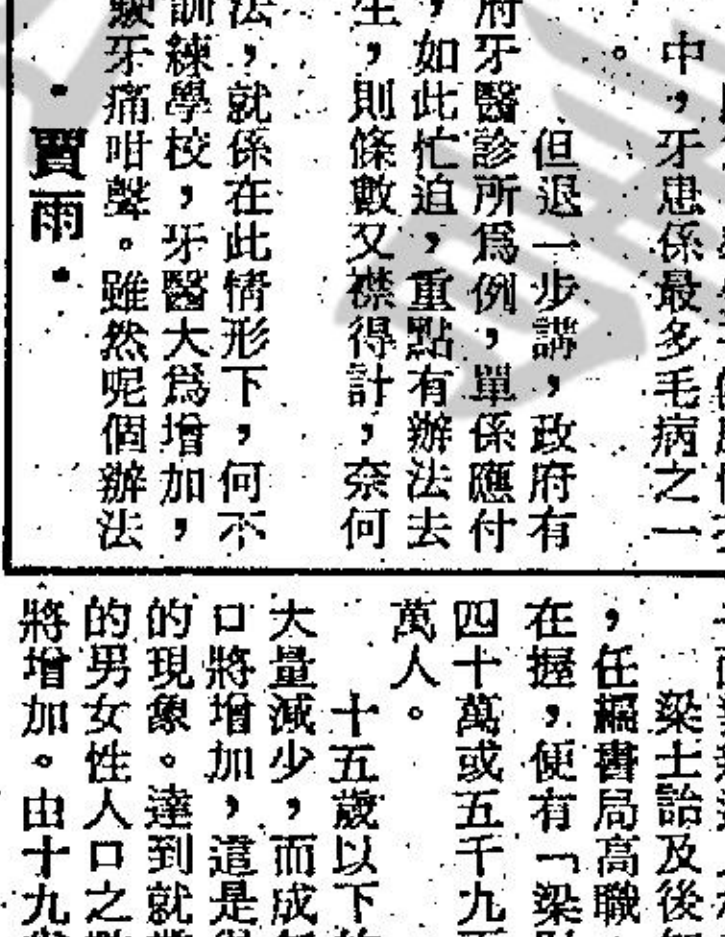 中，牙患係最多毛病之一
。
但退一步講，政府有
府牙醫診所爲例，單係應付
，如此忙迫，重點有辦法去
生，則條數又襟得計，奈何
法，就係在此情形下，何不
訓練學校，牙醫大爲增加，
牙痛咁聲。雖然呢個辦法
·賈雨·
梁士詒及後
，任編書局高職
在握，便有「梁
四十萬或五千九
萬人。
十五歲以下
大量減少，而成
口將增加，這是
的現象。達到就
的男女性人口之
將增加。由十九